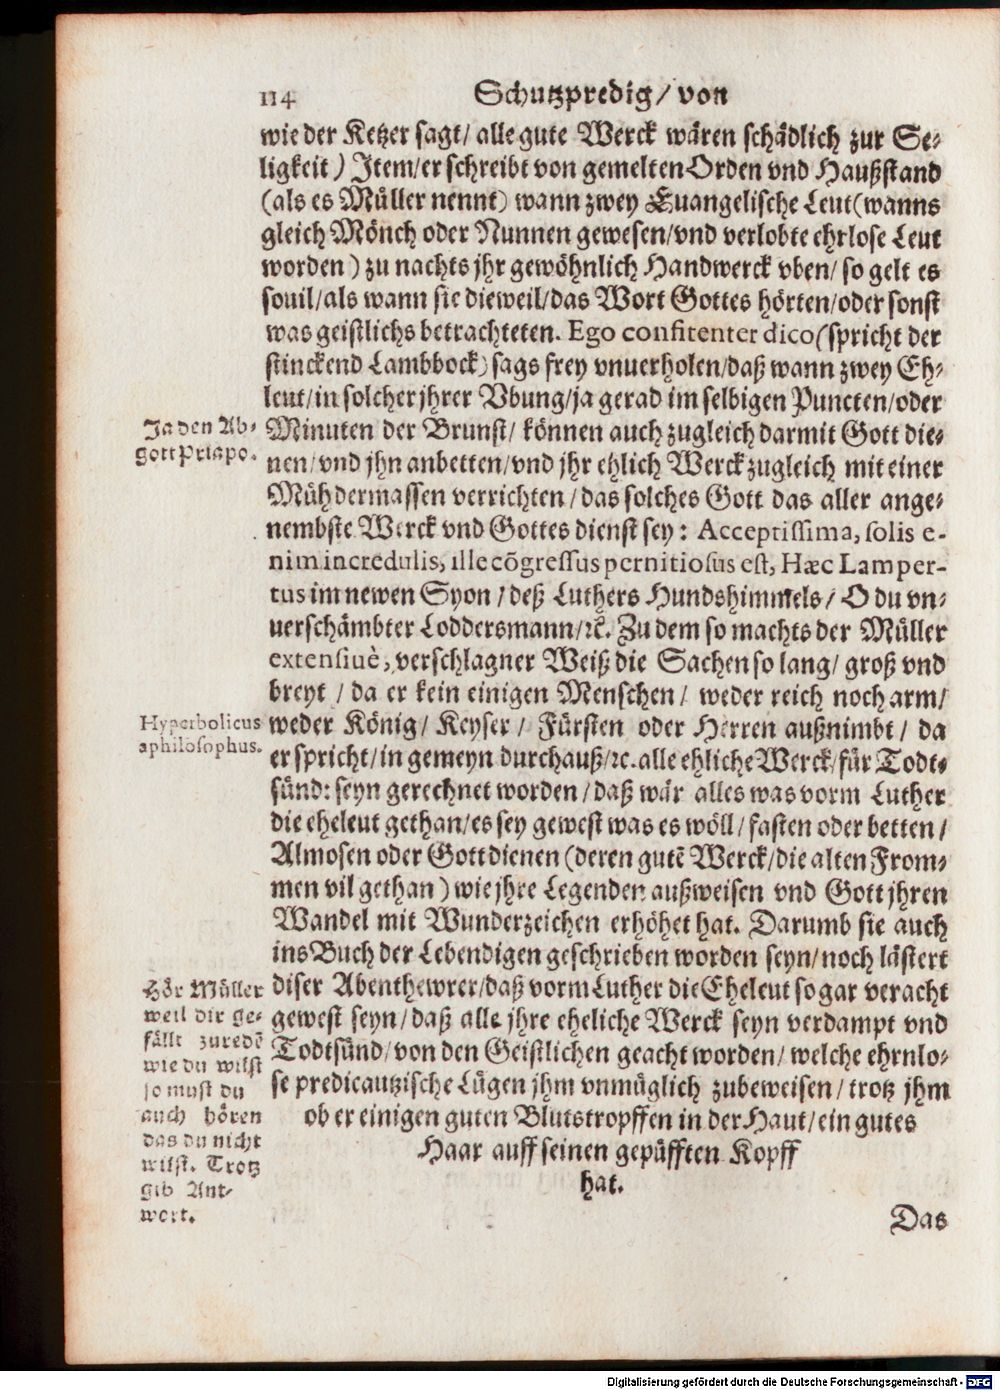 114 Schutzpredig / von
wie der Ketzer sagt / alle gute Werck wären schädlich zur Se-
ligkeit ) Item / er schreibt von gemelten Orden vnd Haußstand
(als es Müller nennt) wann zwey Euangelische Leut (wanns
gleich Mönch oder Nunnen gewesen / vnd verlobte ehrlose Leut
worden ) zu nachts jhr gewöhnlich Handwerck vben / so gelt es
souil / als wann sie dieweil / das Wort Gottes hörten / oder sonst
was geistlichs betrachteten. Ego confitenter dico (spricht der
stinckend Lambbock) sags frey vnuerholen / daß wann zwey Eh-
leut / in solcher jhrer Vbung / ja gerad im selbigen Puncten / oder
Ja den Ab-
gott Priapo.
Minuten der Brunst / können auch zugleich darmit Gott die-
nen / vnd jhn anbetten / vnd jhr ehlich Werck zugleich mit einer
Müh dermassen verrichten / das solches Gott das aller ange-
nembste Werck vnd Gottes dienst sey : Acceptissima, solis e-
nim incredulis, ille cõgressus pernitiosus est, Hæc Lamper-
tus im newen Syon / deß Luthers Hundshimmels / O du vn-
uerschämbter Loddersmann / ꝛc. Zu dem so machts der Müller
extensiuè, verschlagner Weiß die Sachen so lang / groß vnd
breyt / da er kein einigen Menschen / weder reich noch arm /
Hyperbolicus
aphilosophus.
weder König / Keyser / Fürsten oder Herren außnimbt / da
er spricht / in gemeyn durchauß / ꝛc. alle ehliche Werck / für Todt-
sünd: seyn gerechnet worden / daß wär alles was vorm Luther
die eheleut gethan / es sey gewest was es wöll / fasten oder betten /
Almosen oder Gott dienen (deren gutẽ Werck / die alten From-
men vil gethan ) wie jhre Legenden außweisen vnd Gott jhren
Wandel mit Wunderzeichen erhöhet hat. Darumb sie auch
ins Buch der Lebendigen geschrieben worden seyn / noch lästert
Hör Müller
weil dir ge-
fällt zuredẽ
wie du wilst
so must du
auch hören
das du nicht
wilst. Trotz
gib Ant-
wort.
diser Abenthewrer / daß vorm Luther die Eheleut so gar veracht
gewest seyn / daß alle jhre eheliche Werck seyn verdampt vnd
Todtsünd / von den Geistlichen geacht worden / welche ehrnlo-
se predicautzische Lügen jhm vnmüglich zubeweisen / trotz jhm
ob er einigen guten Blutstropffen in der Haut / ein gutes
Haar auff seinen gepüfften Kopff
hat.
Das
Digitalisierung gefördert durch die Deutsche Forschungsgemeinschaft - DFG